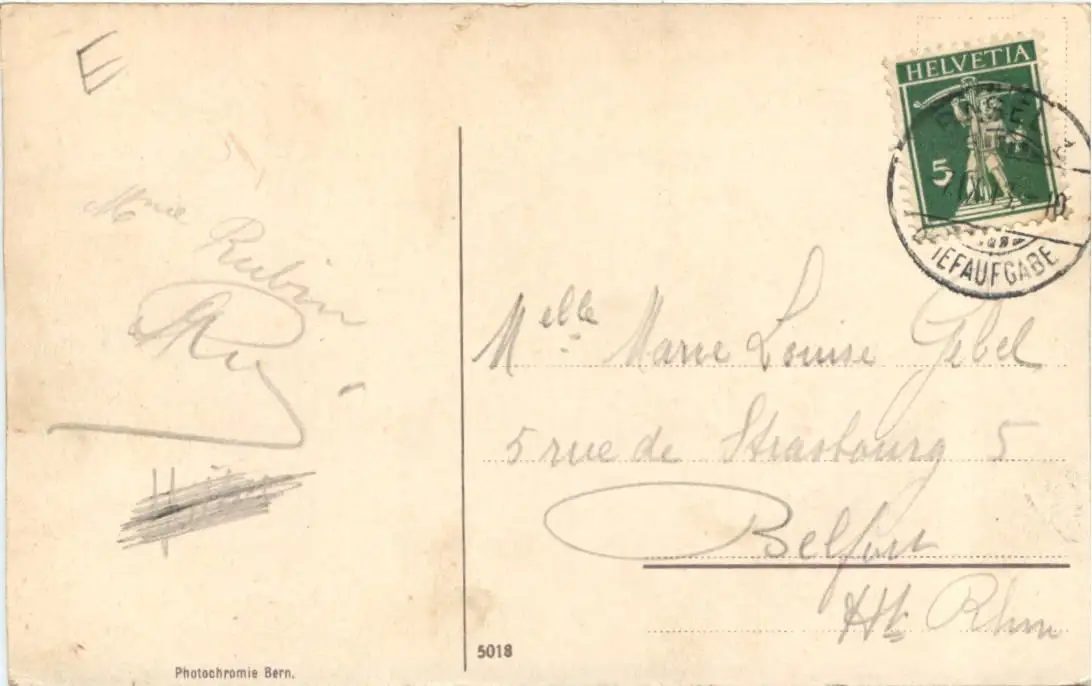 E
HELVETIA
5
BASEL
10
IEFAUFGABE
Mme
Rubin
Melle Marie Louise Gebel
5 rue de Strasbourg 5
Belfort
Ht Rhin
5018
Photochromie Bern.